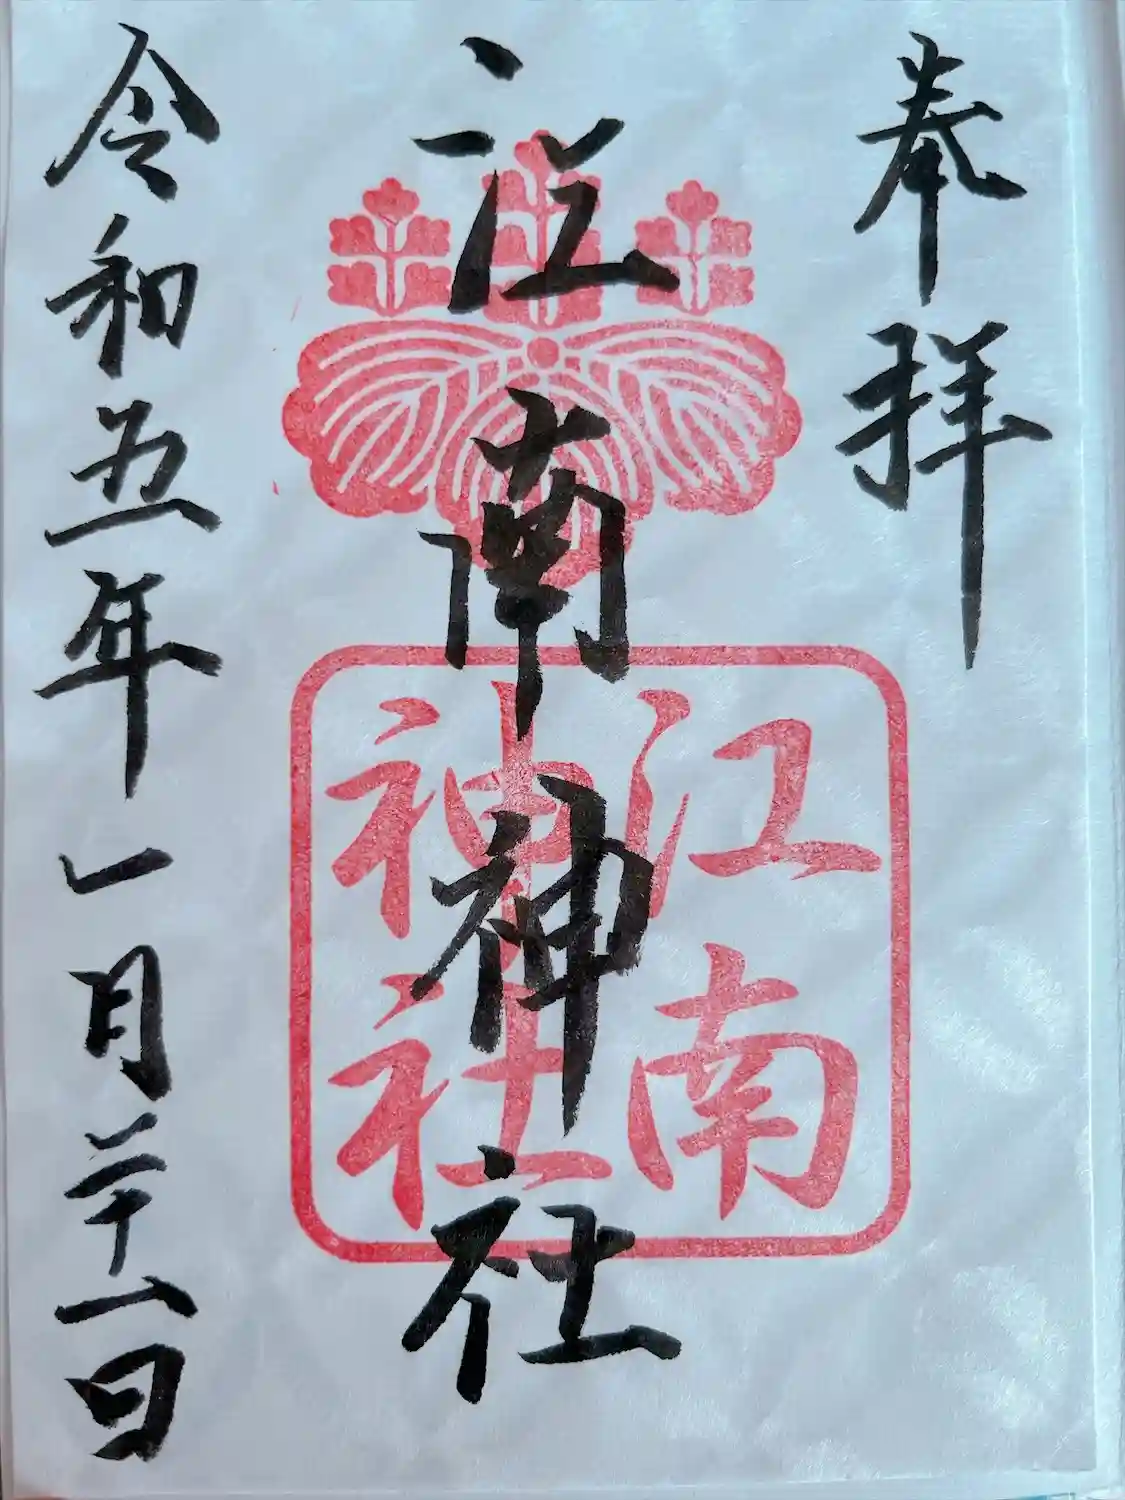 奉拝
江南神社
江南
神社
令和五年一月二十一日